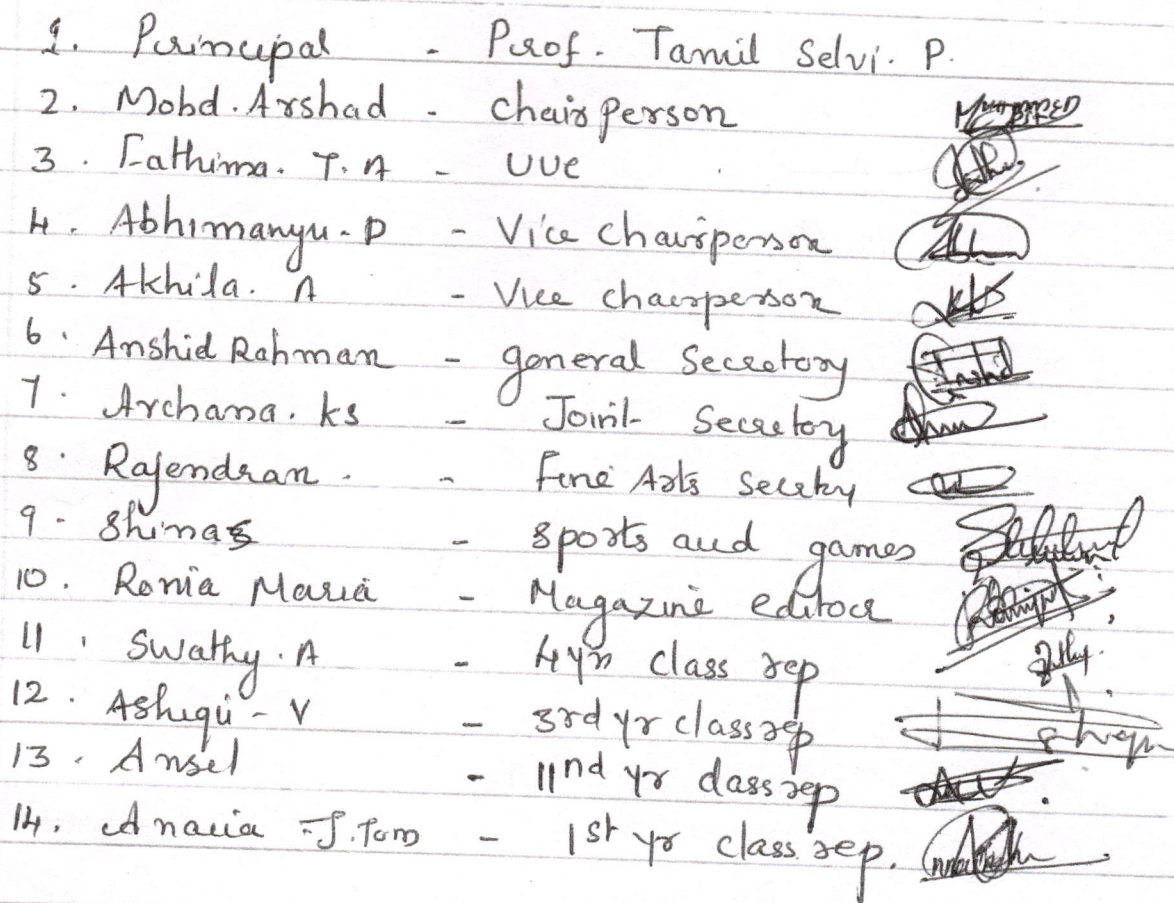 1. Principal - Prof. Tamil Selvi. P.
2. Mohd. Arshad - Chair person
3. Fathima. T. A - UUC
4. Abhimanyu. P - Vice Chairperson
5. Akhila. A - Vice chairperson
6. Anshid Rahman - general Secretory
7. Archana. ks - Joint Secretory
8. Rajendran. - Fine Arts Secrtry
9. Shinas - Sports and games
10. Ronia Maria - Magazine editor
11. Swathy. A - 4 yr class rep
12. Ashiqu - V - 3rd yr class rep
13. Ansel - IInd yr class rep
14. J. Tom - 1st yr class rep.